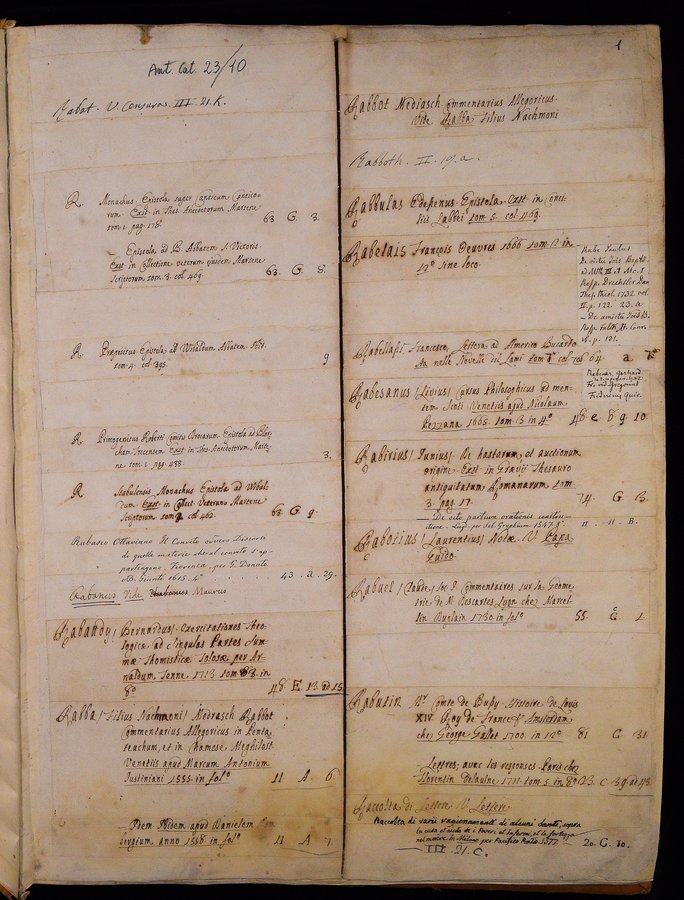 Ant. Cat. 23/10
Rabat. V. Censuras III. 21. K.
R. Monachus Epistola super Canticum Cantico-
rum. Exst in Thes. Anecdotorum Martene
tom. 1. pag. 178. 63 G 3.
— Epistola ad B. Abbatem S. Victoris
Exst in Collectione veterum ejusdem Martene
Scriptorum tom. 3. col. 469. 63. G 8.
R. Epistola ad Wibaldum Abbatem.
tom. 4. col. 395. 9
R. Primogenitus Roberti Comitis Epistola ad
Exst in Thes. Anecdotorum Marte-
ne tom. 1. pag. 488. 3.
R Stabulensis Monachus Epistola ad Wibal-
dum. Exst in Collect. Veterum Martene
Scriptorum tom. 2 col. 462. 63 G 9.
Rabasco Ottaviano Il Convito overo Discorsi
di quelle materie che al convito s'ap-
partengono. Fiorenza per G. Donato
e B. Giunti 1615. 4° 43. a. 29.
Rabanus Vide Maurus
Rabaudy / Bernardus / Exercitationes Theo-
logicæ ad Singulas Partes Sum-
mæ Thomisticæ Tolosæ per Ar-
naldum 1713 tom 3. in
8° 48 E 13 ad 15
Rabba / Filius Nachmoni / Medrasch Rabbot
Commentarius Allegoricus in Penta-
teuchum, et in Chamesc Meghilot
Venetiis apud Marcum Antonium
Justiniani 1555. in fol° 11 A 6
— Idem Ibidem apud Danielem Bom-
bergium anno 1558 in fol° 11 A 7
1
Rabbot Mediasch Commentarius Allegoricus
Vide Rabba Filius Nachmoni
Rabboth. II. 19. a.
Rabbulas Edessenus Epistola. Exst in Conci-
liis Labbei tom. 5. col. 469.
Rabelais François Oeuvres 1666 tom. 2 in
12° sine loco.
Rabe Paulus
De victu Jois Bapt.
ad Mtth III. 4. Mc. 1
Resp. Drechsler
Thes. theol. 1732 vol.
II. p. 122. 23. a
Rabellasi Francesco, Lettera ad Americo Bucardo
Sta nelle Novelle del Lami tom. col 706 64 a
Rabesanus / Livius / Cursus Philosophicus ad men-
tem Scoti Venetiis apud Nicolaum
Pezzana 1665. tom. 3 in 4° 48 e 8 9 10.
Rabirius / Junius / De hastarum, et auctionum
origine Exst in Grævii Thesauro
antiquitatum Romanarum tom.
3. pag. 17. 74. G 13.
— De octo partium orationis
Lugd. per Seb. Gryphium 1547. 11. 11. B.
Rabotius / Laurentius / Notæ. V. Papa
Guido.
Rabuel / Claude / Soc. J. Commentaires sur la Geome-
trie de Mr. Descartes Lyon chez Marcel-
lin Duplain 1730. in fol° 55. G 1
Rabutin Mr. Comte de Bussy Histoire de Louis
XIV Roy de France Amsterdam
chez George Gallet 1700. in 12° 81 G 31
— Lettres, avec les responses Paris chez
Florentin Delaulne 1711. tom. 5. in 8° 23. c. 39 ad 43.
Raccolta di Lettere V. Lettere
Raccolta di varii ragionamenti di alcuni Santi, sopra
la cura di i Poveri et Infermi, et la fortezza
nel morire. in Milano per Pacifico Ponzio 1577. 20. G. 10.
III. 21. C.